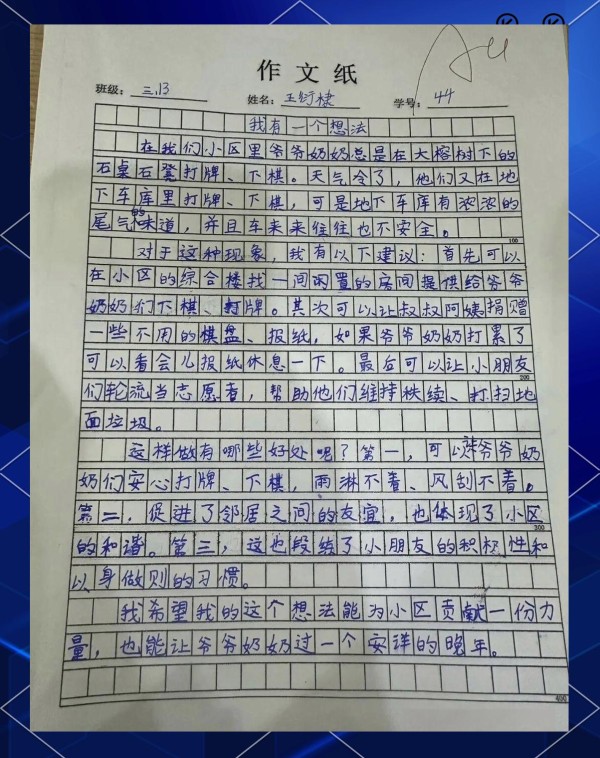 作文纸
班级：三.13 姓名：王衍棣 学号：44
我有一个想法
在我们小区里爷爷奶奶总是在大榕树下的
石桌石凳打牌、下棋。天气冷了，他们又在地
下车库里打牌、下棋，可是地下车库有浓浓的
尾气的味道，并且车来来往往也不安全。
100
对于这种现象，我有以下建议：首先可以
在小区的综合楼找一间闲置的房间提供给爷爷
奶奶们下棋、打牌。其次可以让叔叔阿姨捐赠
一些不用的棋盘、报纸，如果爷爷奶奶打累了
可以看会儿报纸休息一下。最后可以让小朋友
200
们轮流当志愿者，帮助他们维持秩续、打扫地
面垃圾。
这样做有哪些好处呢？第一，可以让爷爷奶
奶们安心打牌、下棋，雨淋不着、风刮不着。
第二，促进了邻居之间的友宜，也体现了小区
300
的和谐。第三，这也段练了小朋友的积极性和
以身做则的习惯。
我希望我的这个想法能为小区贡献一份力
量，也能让爷爷奶奶过一个安详的晚年。
400